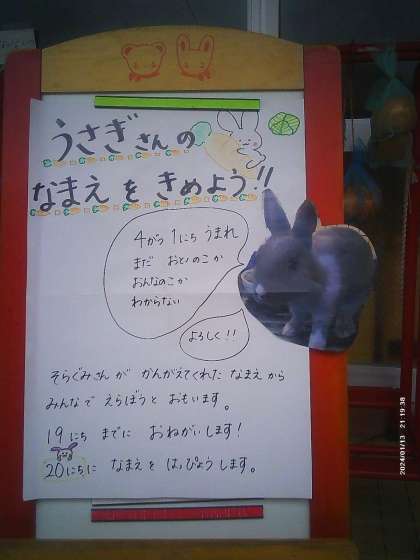 うさぎさんの
なまえをきめよう!!
4がつ1にちうまれ
まだ おとこのこか
おんなのこか
わからない
よろしく!!
そらぐみさんが かんがえてくれた なまえから
みんなで えらぼうと おもいます。
19にち までに おねがいします!
20にちに なまえを はっぴょうします。
2024/01/13 21:19:38